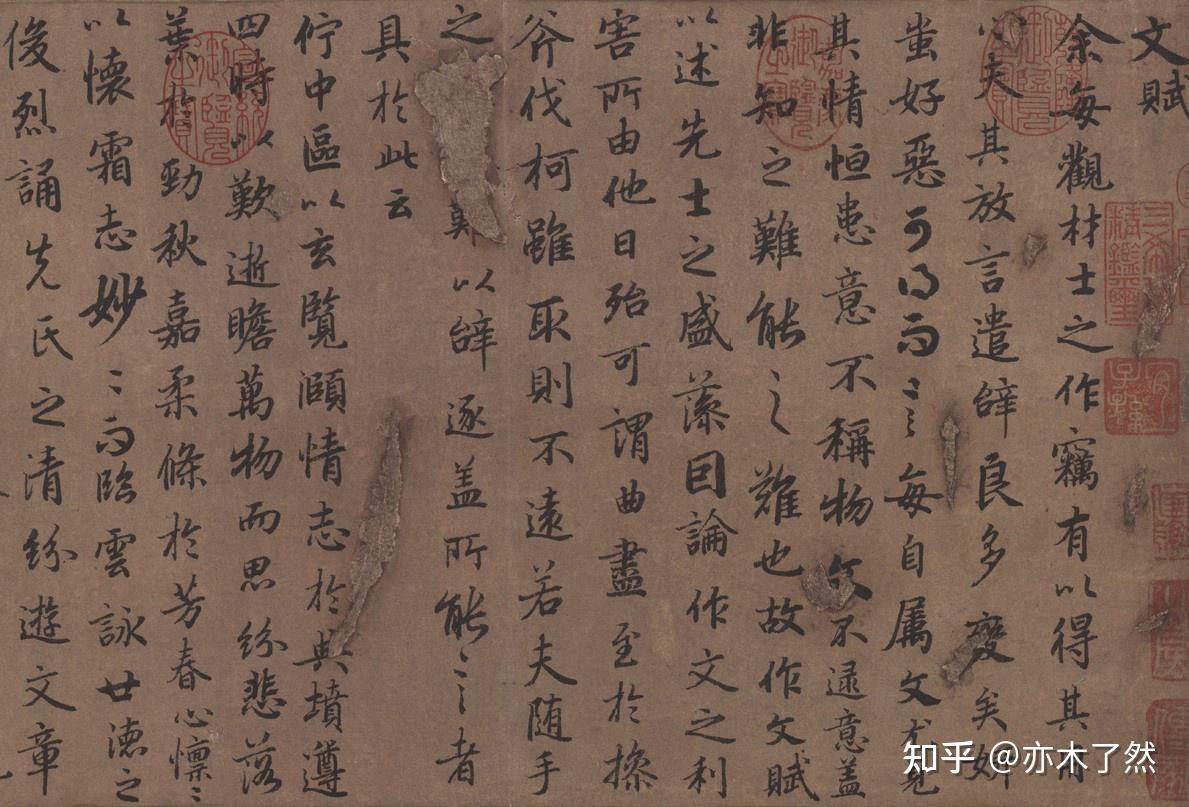 文賦
余每觀材士之作竊有以得其用
心夫其放言遣辭良多變矣妍
蚩好惡可得而言每自属文尤見
其情恒患意不稱物文不逮意盖
非知之難能之難也故作文賦
以述先士之盛藻因論作文之利
害所由他日殆可謂曲盡至於操
斧伐柯雖取則不遠若夫随手
之難以辭逐盖所能言者
具於此云
佇中區以玄覽頤情志於典墳遵
四時以歎逝瞻萬物而思紛悲落
葉於勁秋嘉柔條於芳春心懍〻
以懷霜志妙〻而臨雲詠世德之
俊烈誦先氏之清紛遊文章
三希堂精鑑璽
宜子孫
知乎 @亦木了然